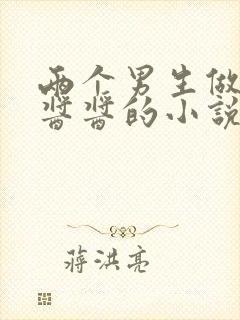 两个男生做
酱酱的小说
蒋洪亮